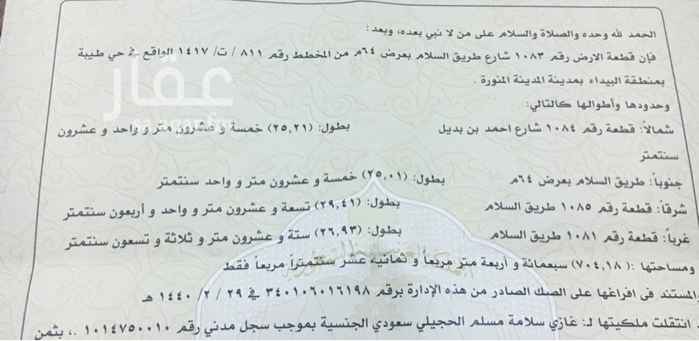 الحمد لله وحده والصلاة والسلام على من لا نبي بعده، وبعد:
فإن قطعة الارض رقم ١٠٨٣ شارع طريق السلام بعرض ٦٤م من المخطط رقم ٨١١ / ت/ ١٤١٧ الواقع في حي طيبة
بمنطقة البيداء بمدينة المدينة المنورة .
وحدودها وأطوالها كالتالي:
شمالاً: قطعة رقم ١٠٨٤ شارع احمد بن بديل بطول: (٢٥,٢١) خمسة و عشرون متر و واحد و عشرون
سنتمتر
جنوباً: طريق السلام بعرض ٦٤م بطول: (٢٥,٠١) خمسة و عشرون متر و واحد سنتمتر
شرقاً: قطعة رقم ١٠٨٥ طريق السلام بطول: (٢٩,٤١) تسعة و عشرون متر و واحد و أربعون سنتمتر
غرباً: قطعة رقم ١٠٨١ طريق السلام بطول: (٢٦,٩٣) ستة و عشرون متر و ثلاثة و تسعون سنتمتر
ومساحتها :( ٧٠٤,١٨) سبعمائة و أربعة متر مربعاً و ثمانية عشر سنتمتراً مربعاً فقط
المستند في افراغها على الصك الصادر من هذه الإدارة برقم ٣٤٠١٠٦٠١٦١٩٨ في ٢٩ / ٢ / ١٤٤٠ هـ
انتقلت ملكيتها لـ: غازي سلامة مسلم الحجيلي سعودي الجنسية بموجب سجل مدني رقم ١٠١٤٧٥٠٠١٠ ,، بثمن
عقار